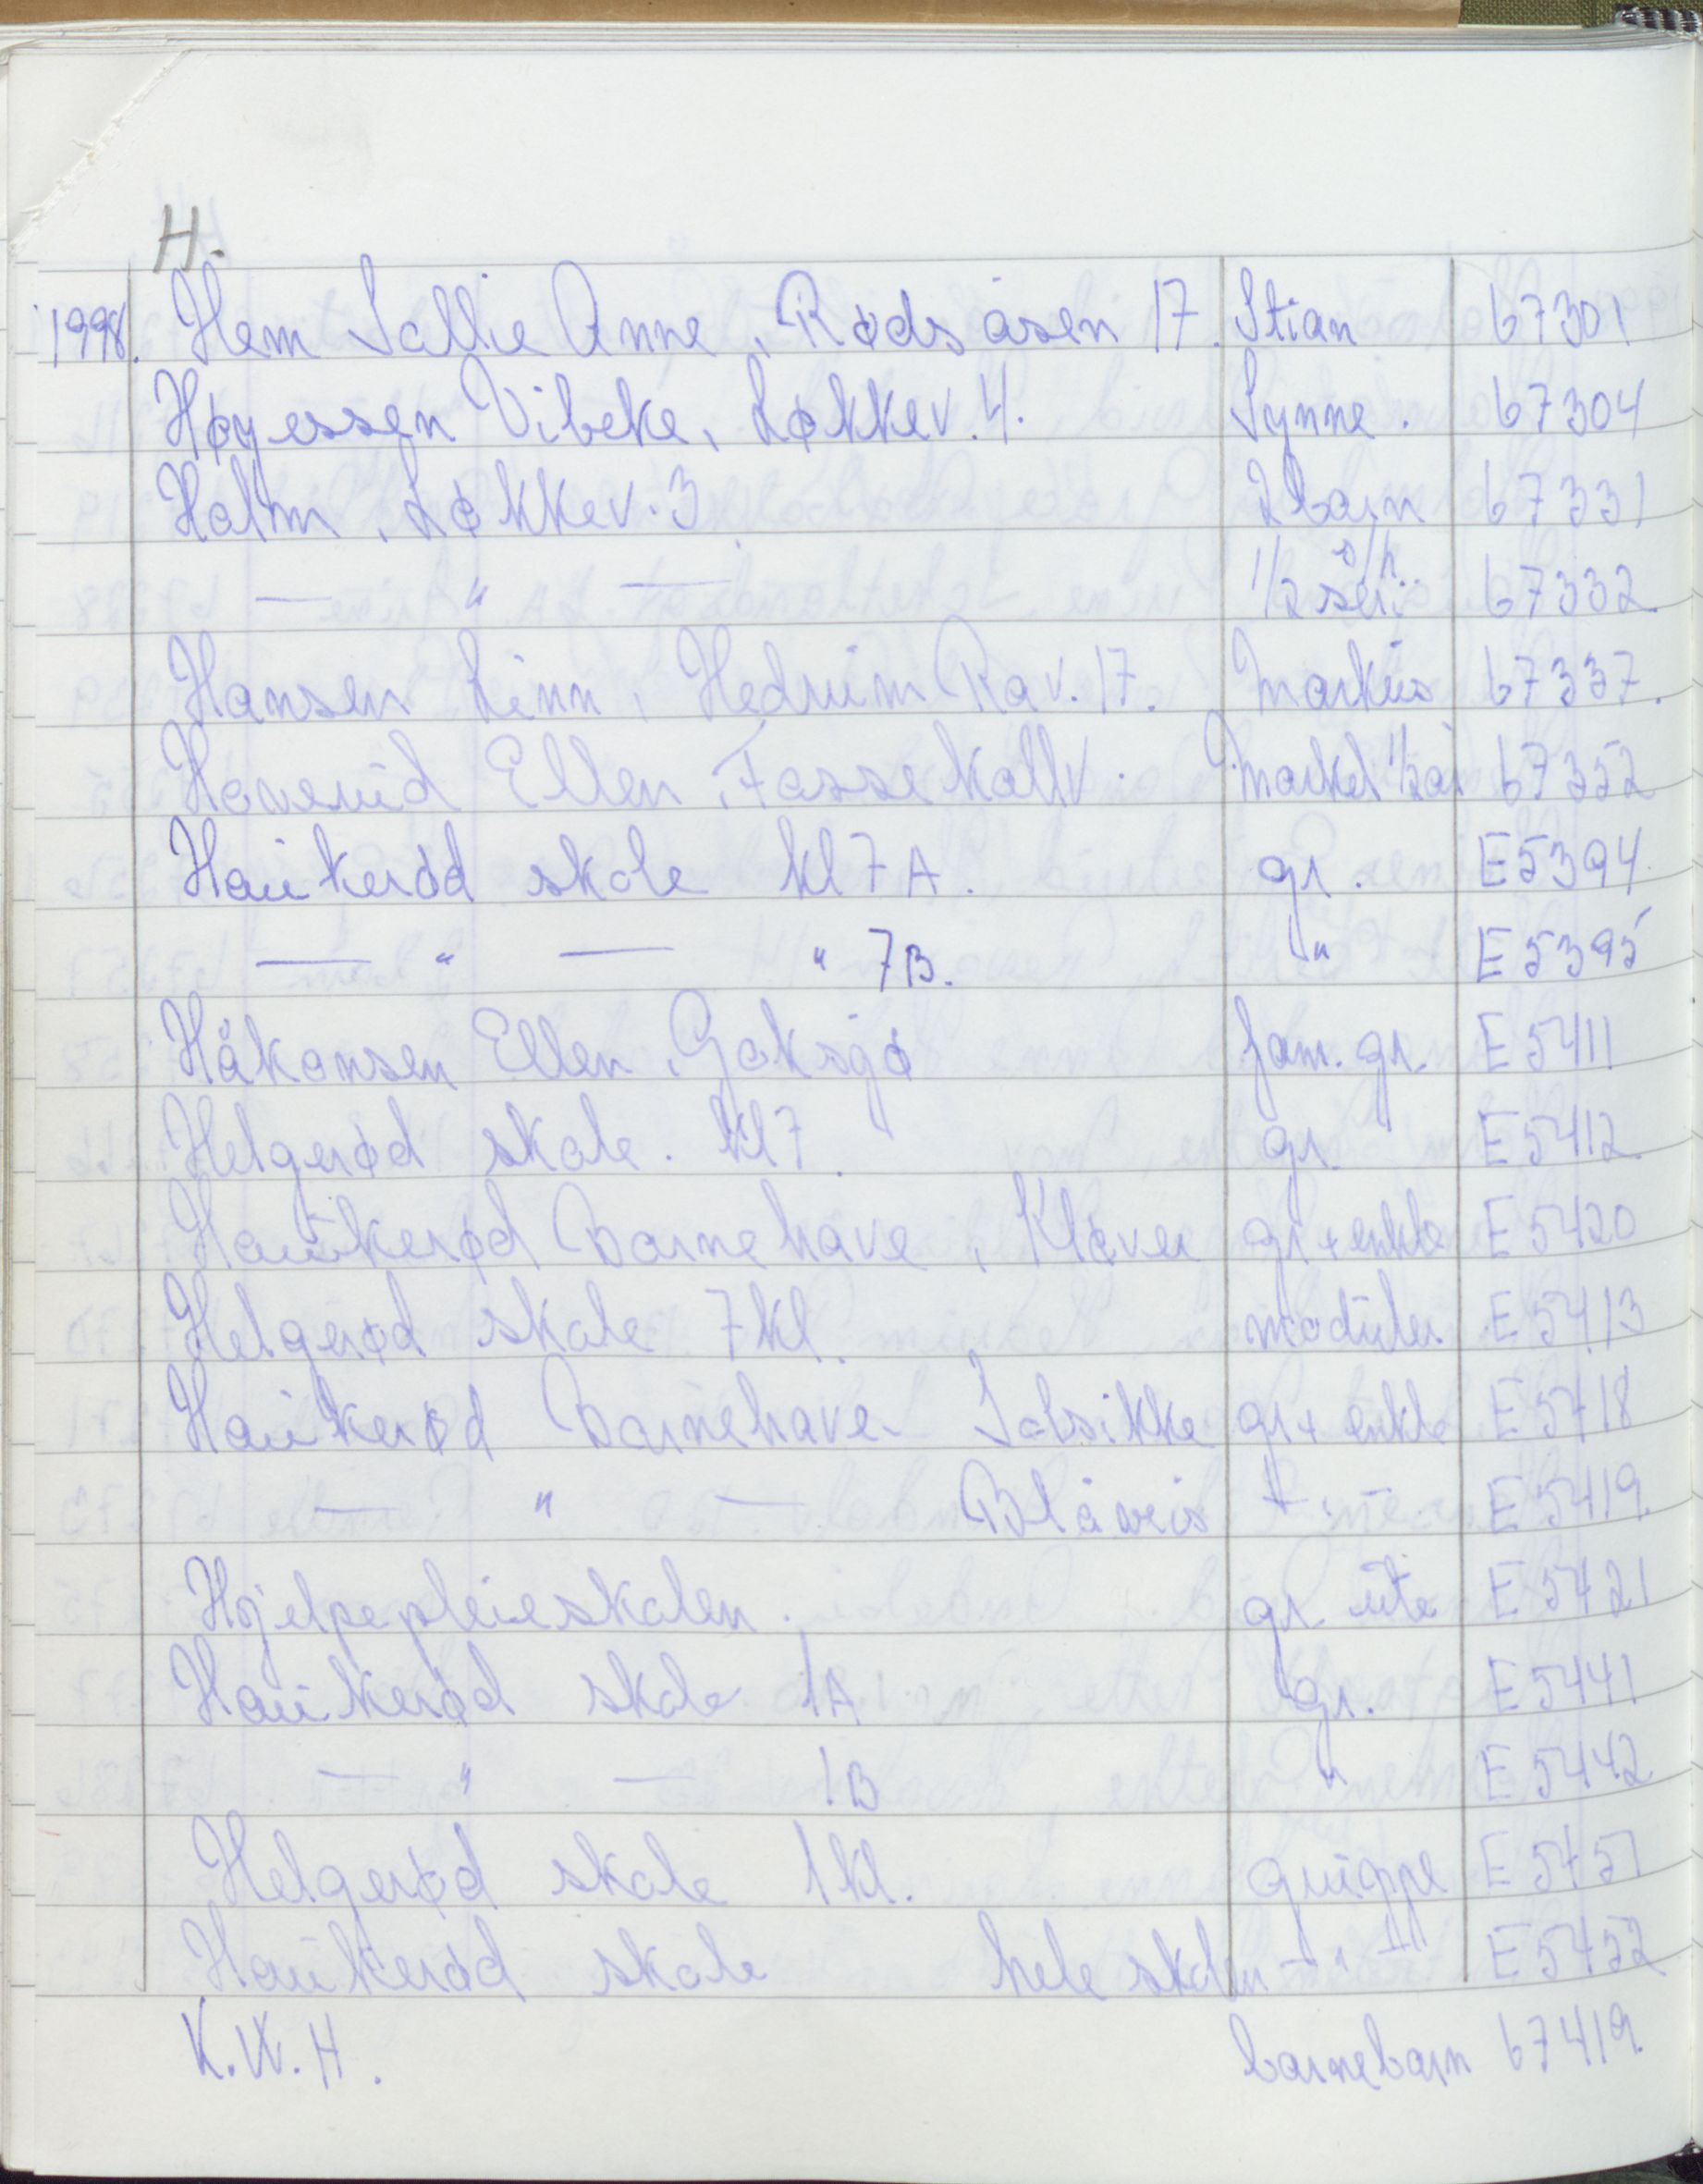 H.
1998. Hem Sallie Anne, Rødsåsen 17. Stian 67301
Høyessen Vibeke, Løkkev. 4. Synne. 67304
Holm, Løkkev. 3 2 barn 67331
— " — 1/2 s/h. 67332
Hansen Linn, Hedrum Rav. 17. Markus 67337.
Haverud Ellen, Fossekallv. 67352
Haukerød skole kl 7A. gr. E5394
— " — " 7B. " E5395
Håkonsen Ellen, Goksjø fam. gr. E5411
Helgerød skole. kl 7. gr. E5412
Haukerød Barnehave, Kløver gr + enkle E5420
Helgerød skole 7kl. moduler E5413
Haukerød Barnehave Solsikke gr + enkle E5418
— " — Blåveis E5419
Hjelpepleieskolen. gr. ute E5421
Haukerød skole 1A gr. E5441
— " — 1B " E5442
Helgerød skole 1kl. gruppe E5451
Haukerød skole hele skolen — " — E5452
K.W.H. barnebarn 67419